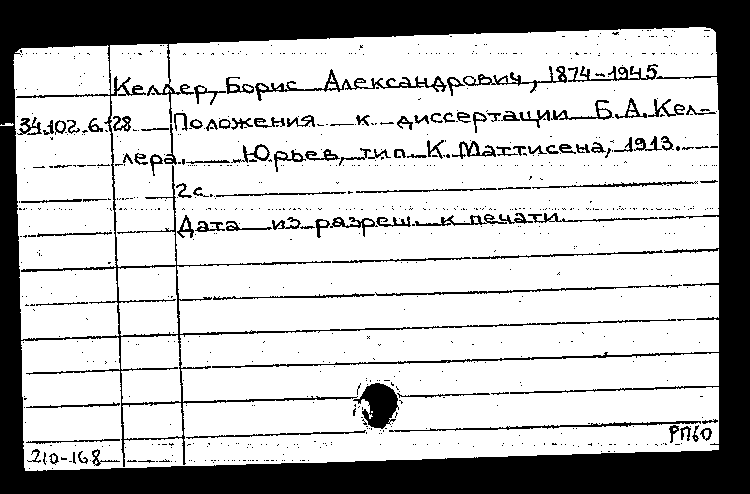 Келлер, Борис Александрович, 1874-1945.
34.102.6.128 Положения к диссертации Б.А.Кел-
лера. Юрьев, тип. К. Маттисена, 1913.
2с.
Дата из разреш. к печати.
РП60
210-168